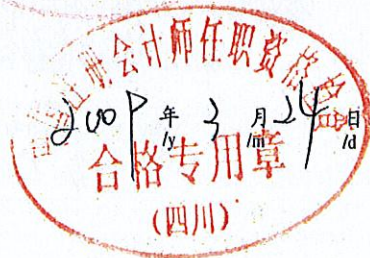 注册会计师任职资格检查
2009 年 3 月 24 日
/y /m /d
合格专用章
(四川)